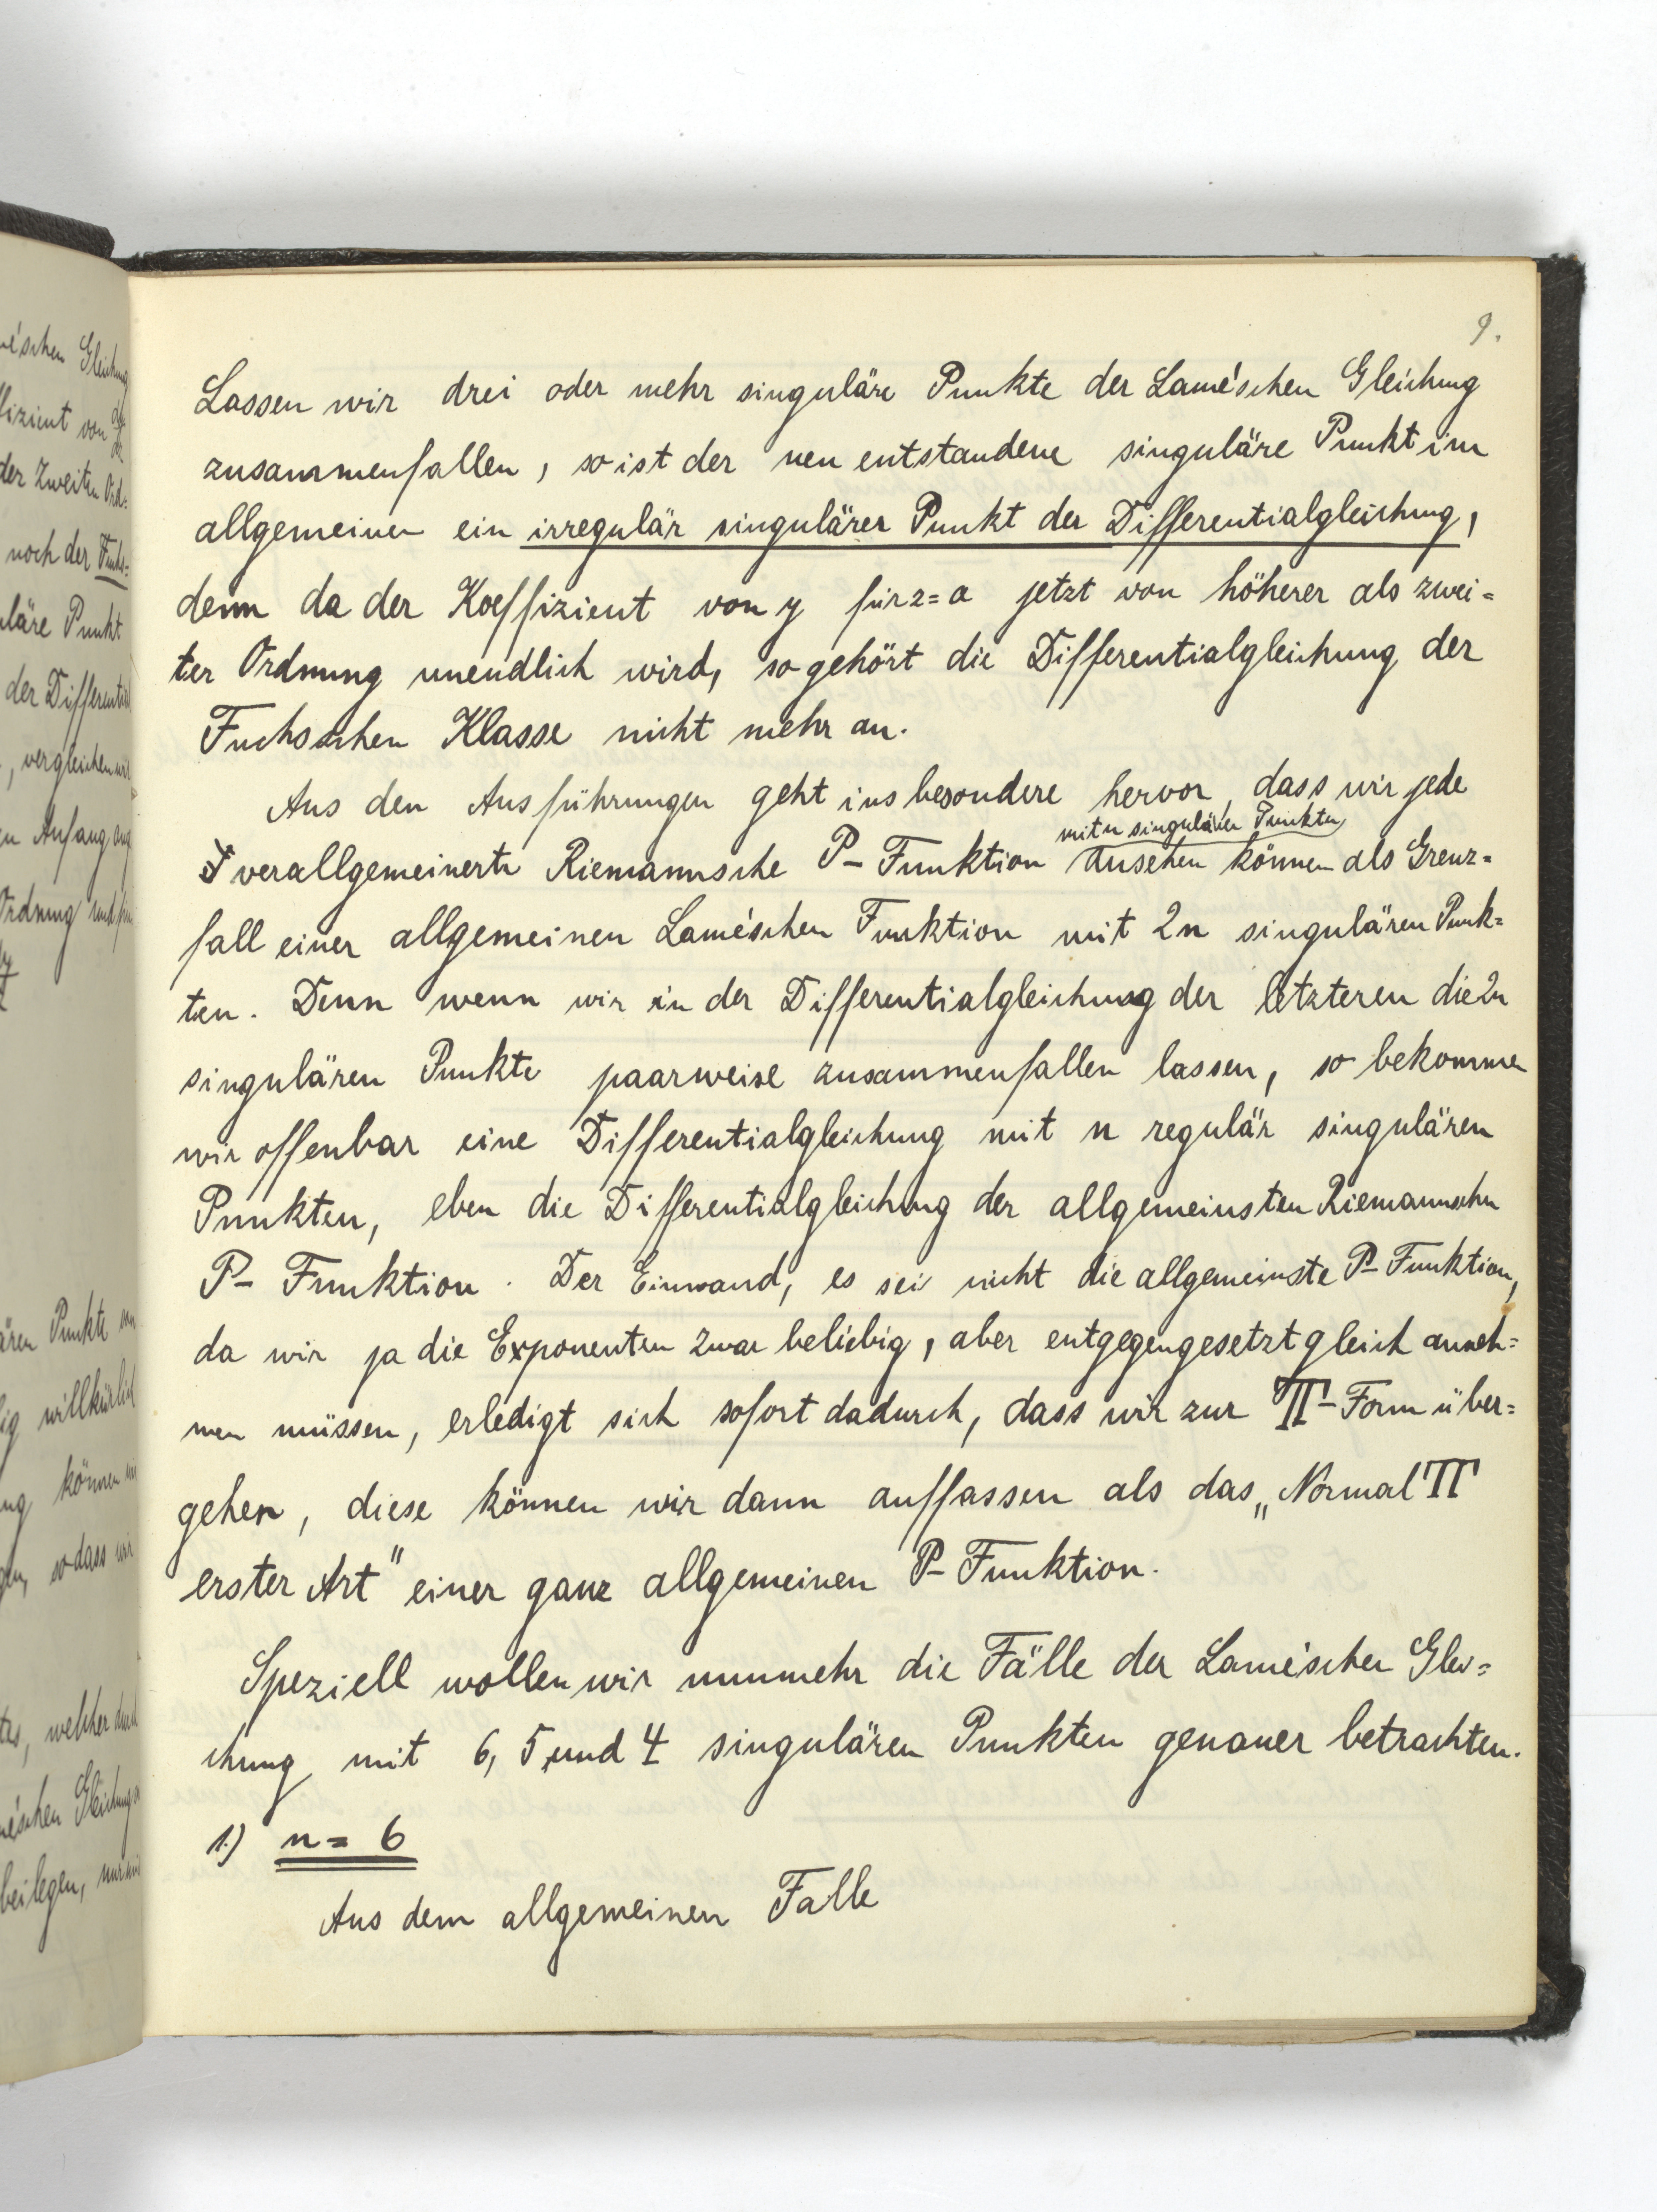 9.
Lassen wir drei oder mehr singuläre Punkte der Lamé'schen Gleichung
zusammenfallen, so ist der neu entstandene singuläre Punkt im
allgemeinen ein irregulär singulärer Punkt der Differentialgleichung,
denn da der Koeffizient von y für z=a jetzt von höherer als zwei=
ter Ordnung unendlich wird, so gehört die Differentialgleichung der
Fuchsschen Klasse nicht mehr an.
Aus den Ausführungen geht insbesondere hervor, dass wir jede
mit n singulären Punkten
verallgemeinerte Riemannsche P-Funktion ansehen können als Grenz=
fall einer allgemeinen Lamé'schen Funktion mit 2n singulären Punk=
ten. Denn wenn wir in der Differentialgleichung der letzteren die 2n
singulären Punkte paarweise zusammenfallen lassen, so bekommen
wir offenbar eine Differentialgleichung mit n regulär singulären
Punkten, eben die Differentialgleichung der allgemeinsten Riemannschen
P-Funktion. Der Einwand, es sei nicht die allgemeinste P-Funktion,
da wir ja die Exponenten zwar beliebig, aber entgegengesetzt gleich anneh=
men müssen, erledigt sich sofort dadurch, dass wir zur Π-Form über=
gehen, diese können wir dann auffassen als das „Normal Π
erster Art" einer ganz allgemeinen P-Funktion.
Speziell wollen wir nunmehr die Fälle der Lamé'schen Glei=
chung mit 6, 5 und 4 singulären Punkten genauer betrachten.
1.) n = 6
Aus dem allgemeinen Falle